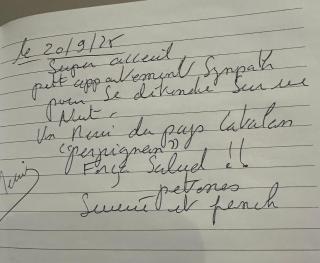 le 20/9/25
Super acceuil
petit appartement Sympath
pour Se détendre Sur une
Nuit.
Un Ami du pays Catalan
(perpignan)
Força Salud !!
petones
et